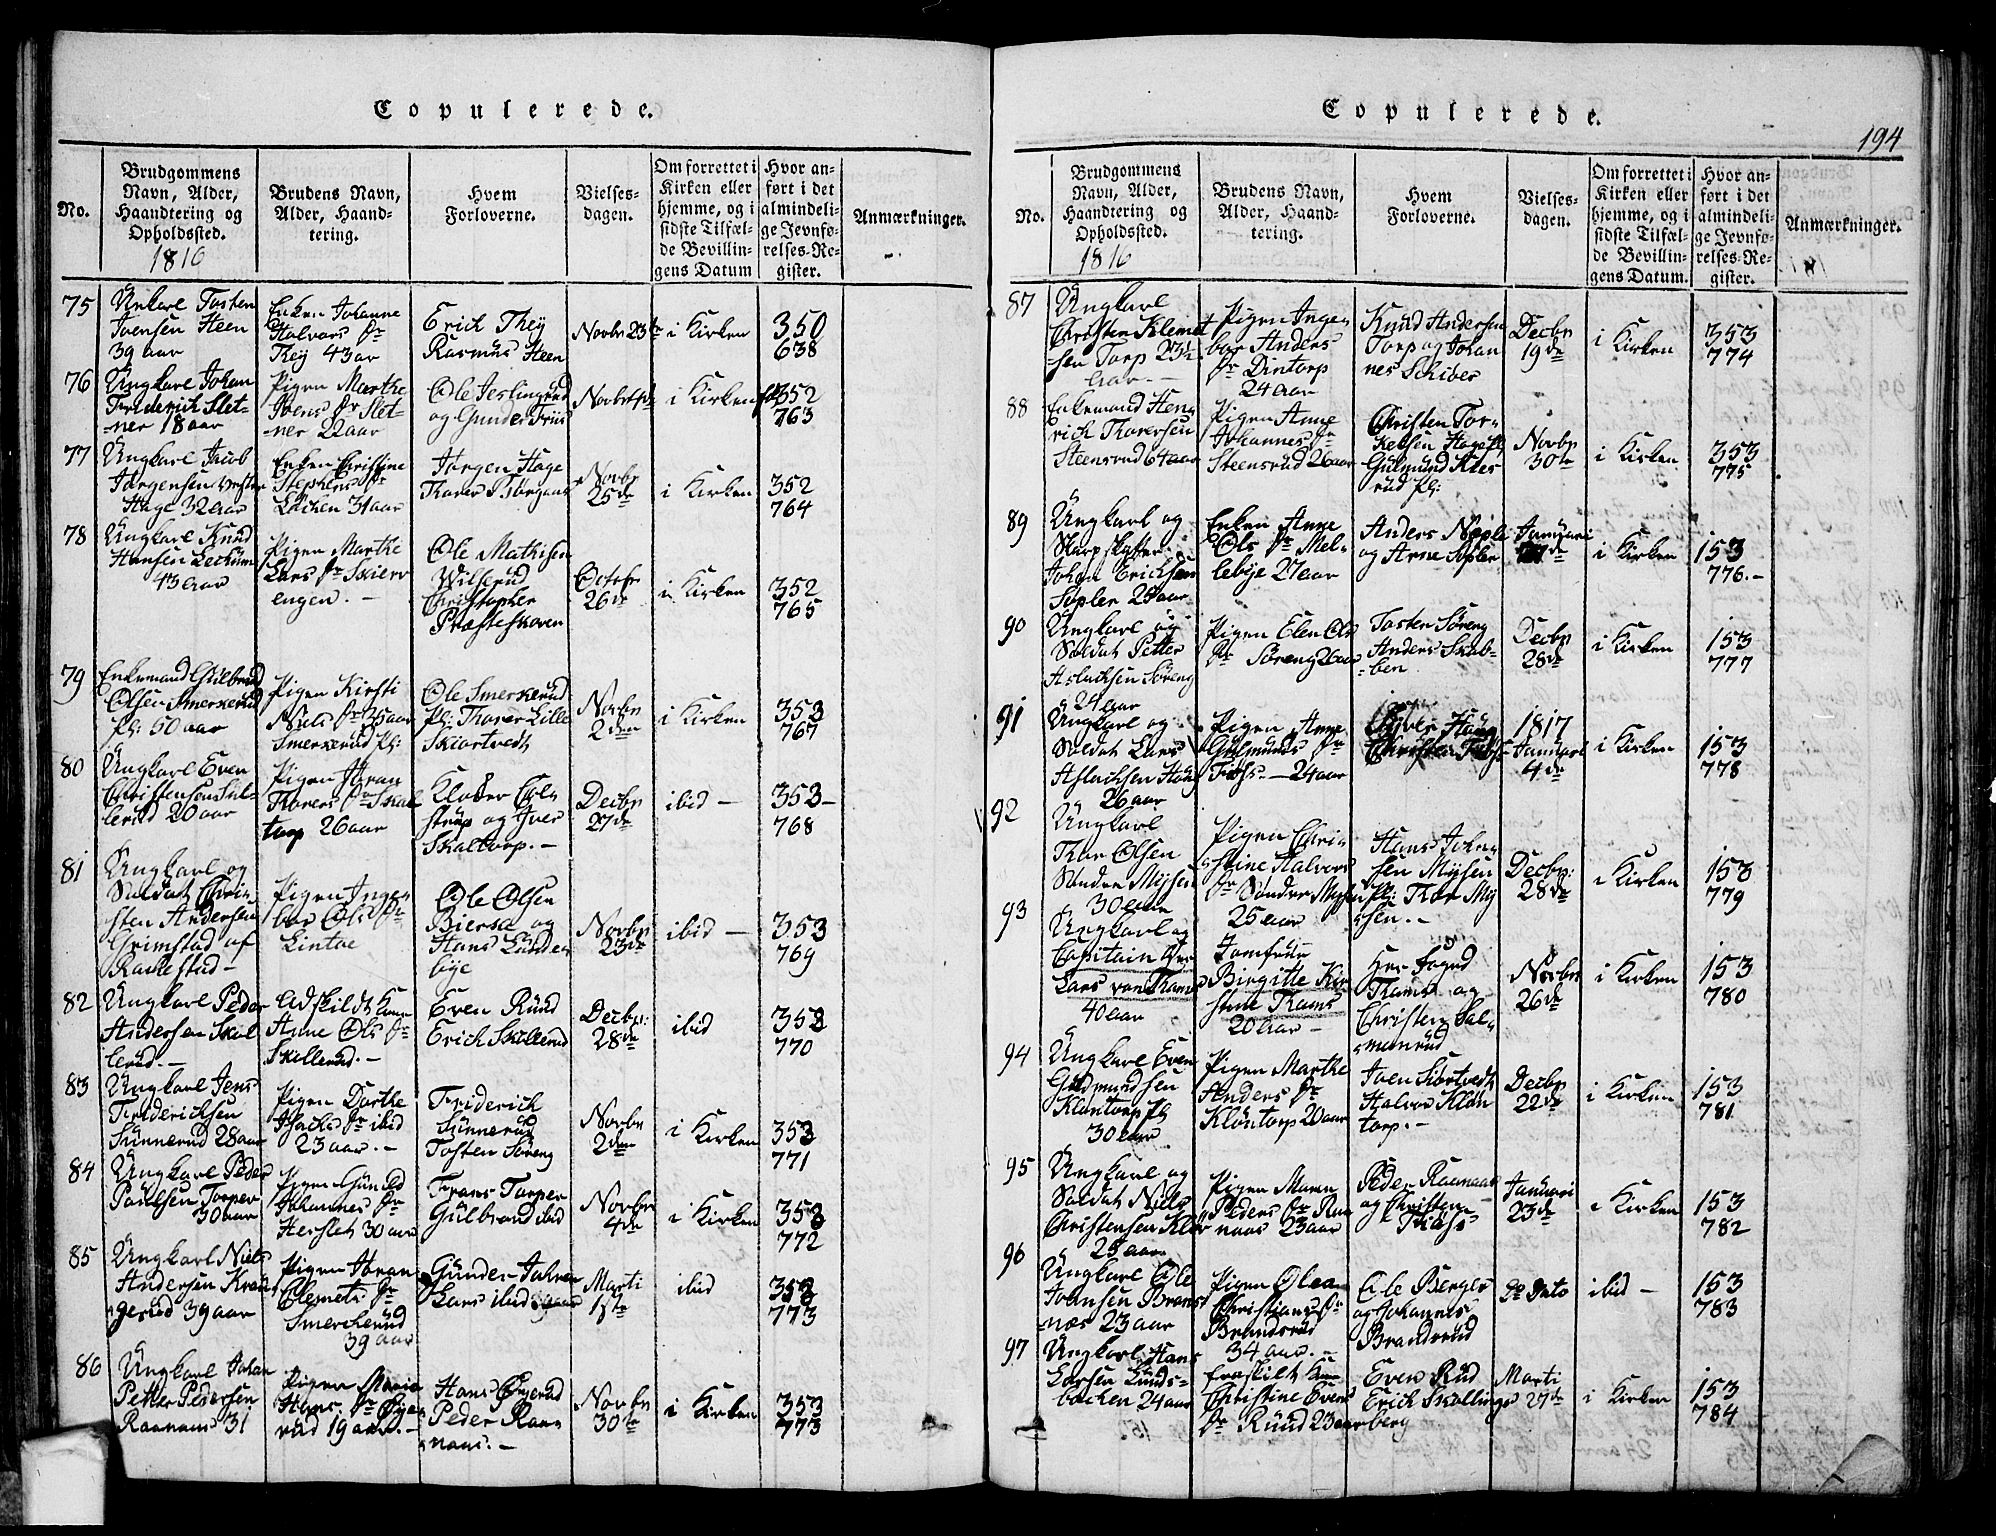 Copulerede.
No.
Brudgommens
Navn, Alder,
Haandtering og
Opholdssted.
1816
Brudens Navn,
Alder, Haand-
tering.
Hvem
Forloverne.
Vielses-
dagen.
Om forrettet i
Kirken eller
hjemme, og i
sidste Tilfæl-
de Bevillin-
gens Datum
Hvor an-
ført i det
almindeli-
ge Jevnfø-
relses-Re-
gister.
Anmærkninger.
75
Unkarl Tosten
Joensen Heen
39 aar
Enken Johanne
Halvors Dr
Theÿ 43 aar
Erich Theÿ
Rasmus Heen
Novbr 23de
i Kirken
350
638
76
Ungkarl Johan
Friderich Slet-
ner 18 aar
Pigen Marthe
Joens Dr Slet-
ner 22 aar
Ole Jeslingrud
og Gunder Friis
i Kirken
352
763
77
Ungkarl Jacob
Jørgensen
Hage 32 aar
Enken Christine
Stephens Dr
Løchen 31 aar
Jørgen Hage
Thorer
Novbr
25de
i Kirken
352
764
78
Ungkarl Knud
Hansen
43 aar
Pigen Marthe
Lars Dr Skier
engen. -
Ole Mathisen
Wilserud
Christopher
Præsteskoven
Octobr
26de
i Kirken
352
765
79
Enkemand Gulbrand
Olsen Smerkerud
pl: 50 aar
Pigen Kirsti
Niels Dr 35 aar
Smerkerud pl:
Ole Smerkerud
pl: Thorer Lille
Skiortvedt
Novbr
2den
i Kirken
353
767
80
Ungkarl Even
Christensen Skil-
lerud 20 aar
Pigen Joran
Thorers Dr Skal
torp 26 aar
og Iver
Skaltorp. -
Decbr
27de
ibid -
353
768
81
Ungkarl og
Soldat Chri-
sten Andersen
Grimstad af
Rakkestad -
Pigen Inge-
bor Ols Dr
Lintoe
Ole Olsen
og
Hans Lunde-
bye
Novbr
23de
ibid -
353
769
82
Ungkarl Peder
Andersen Skil
lerud -
Adskildt Kone
Anne Ols Dr
Skillerud. -
Even Ruud
Erich Skallerud
Decbr:
28de
ibid
353
770
83
Ungkarl Jens
Friderichsen
Sunnerud 28 aar
Pigen Dorthe
Isachs Dr ibid
23 aar. -
Friderich
Sunnerud
Tosten Søreng
Novbr
2den
i Kirken
353
771
84
Ungkarl Peder
Poulsen Torper
30 aar
Pigen Gunild
Johannes Dr
Herslet 30 aar
Frans Torper
Gulbrand ibid
Novbr
4de
i Kirken
353
772
85
Ungkarl Niels
Andersen
gerud 39 aar
Pigen Joran
Clemets Dr
Smerckerud
39 aar
Gunder
Lars ibid
Marti
1ste
ibid
353
773
86
Ungkarl Johan
Petter Pedersen
Raanaas 31
Pigen Maria
Hans Dr Øÿe-
rud 19 aar. -
Hans Øÿerud
Peder Raa-
naas. -
Novbr
30te
i Kirken
353
773
Copulerede.
194
No.
Brudgommens
Navn, Alder,
Haandtering og
Opholdssted.
1816
Brudens Navn,
Alder, Haand-
tering.
Hvem
Forloverne.
Vielses-
dagen.
Om forrettet i
Kirken eller
hjemme, og i
sidste Tilfæl-
de Bevillin-
gens Datum.
Hvor an-
ført i det
almindeli-
ge Jevnfø-
relses-Re-
gister.
Anmærkninger.
87
Ungkarl
Christen Klemet
sen Torp 23½
aar. -
Pigen Inge-
bor Anders
Dr Dintorp
24 aar
Knud Andersen
Torp og Johan
nes Schiber
Decbr
19de
i Kirken
353
774
88
Enkemand Hen-
rich Thorersen
Steensrud 64 aar
Pigen Anne
Johannes Dr
Steensrud 26 aar
Christen Tor-
kelsen Hage pl:
Gulmund
rud pl:
Novbr
30te
i Kirken
353
775
89
Ungkarl og
Skarpskytter
Johan Erichsen
Sopler 25 aar
Enken Anne
Ols Dr Mel-
lebye 27 aar
Anders
og Arne Sopler
Januari
i Kirken
153
776.-
90
Ungkarl og
Soldat Petter
Aslachsen Søreng
24 aar
Pigen Elen Ols
Dr Søreng 26 aar
Tosten Søreng
Anders Skab-
ben
Decbr
28de
i Kirken
153
777
91
Ungkarl og
Soldat Lars
Aslachsen Haug
26 aar
Pigen Anne
Gulmunds Dr
24 aar
Haug
Christen
1817
Januari
4de
i Kirken
153
778
92
Ungkarl
Thor Olsen
Søndre Mÿsen
30 aar
Pigen Chri-
stine Halvors
Dr Søndre Mÿsen
25 aar
Hans John-
sen Mÿsen
pl: Thor Mÿ
sen. -
Decbr:
28de
i Kirken
153
779
93
Ungkarl og
Capitain
Lars von Thams
40 aar
Jomfrue
Birgitte Kir-
stine Thams
20 aar -
Her Foged
Thams og
Christen Sal-
monrud
Novbr
26de
i Kirken
153
780
94
Ungkarl Even
Guldmundsen
Kløntorp pl
30 aar
Pigen Marthe
Anders Dr
Kløntorp 20 aar
Joen Siørtvedt
Halvor Kløn
torp. -
Decbr
22de
i Kirken
153
781
95
Ungkarl og
Soldat Niels
Christensen
25 aar
Pigen Maren
Peders Dr Raa
naas 23 aar
Peder Raanaas
og Christen
Januari
23de
i Kirken
153
782
96
Ungkarl Ole
Johnsen
næs 23 aar
Pigen Olea
Christians Dr
Brandsrud
34 aar. -
Ole Berger
og Johannes
Brandsrud
Do Dato
ibid -
153
783
97
Ungkarl Hans
Larsen Lunds-
backen 24 aar
Fraskilt
Christine Evens
Dr Ruud 23 aar
Even Rud
Erich Skallings
berg
Marti
27de
i Kirken
153
784